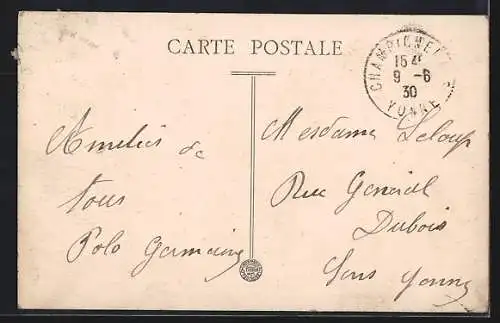 CARTE POSTALE
CHAMPIGNEL
16 4
9 -6
30
YONNE
Amitiés de
tous
Polo Germaine
Mesdames Leloup
Rue Général
Dubois
Sens Yonne